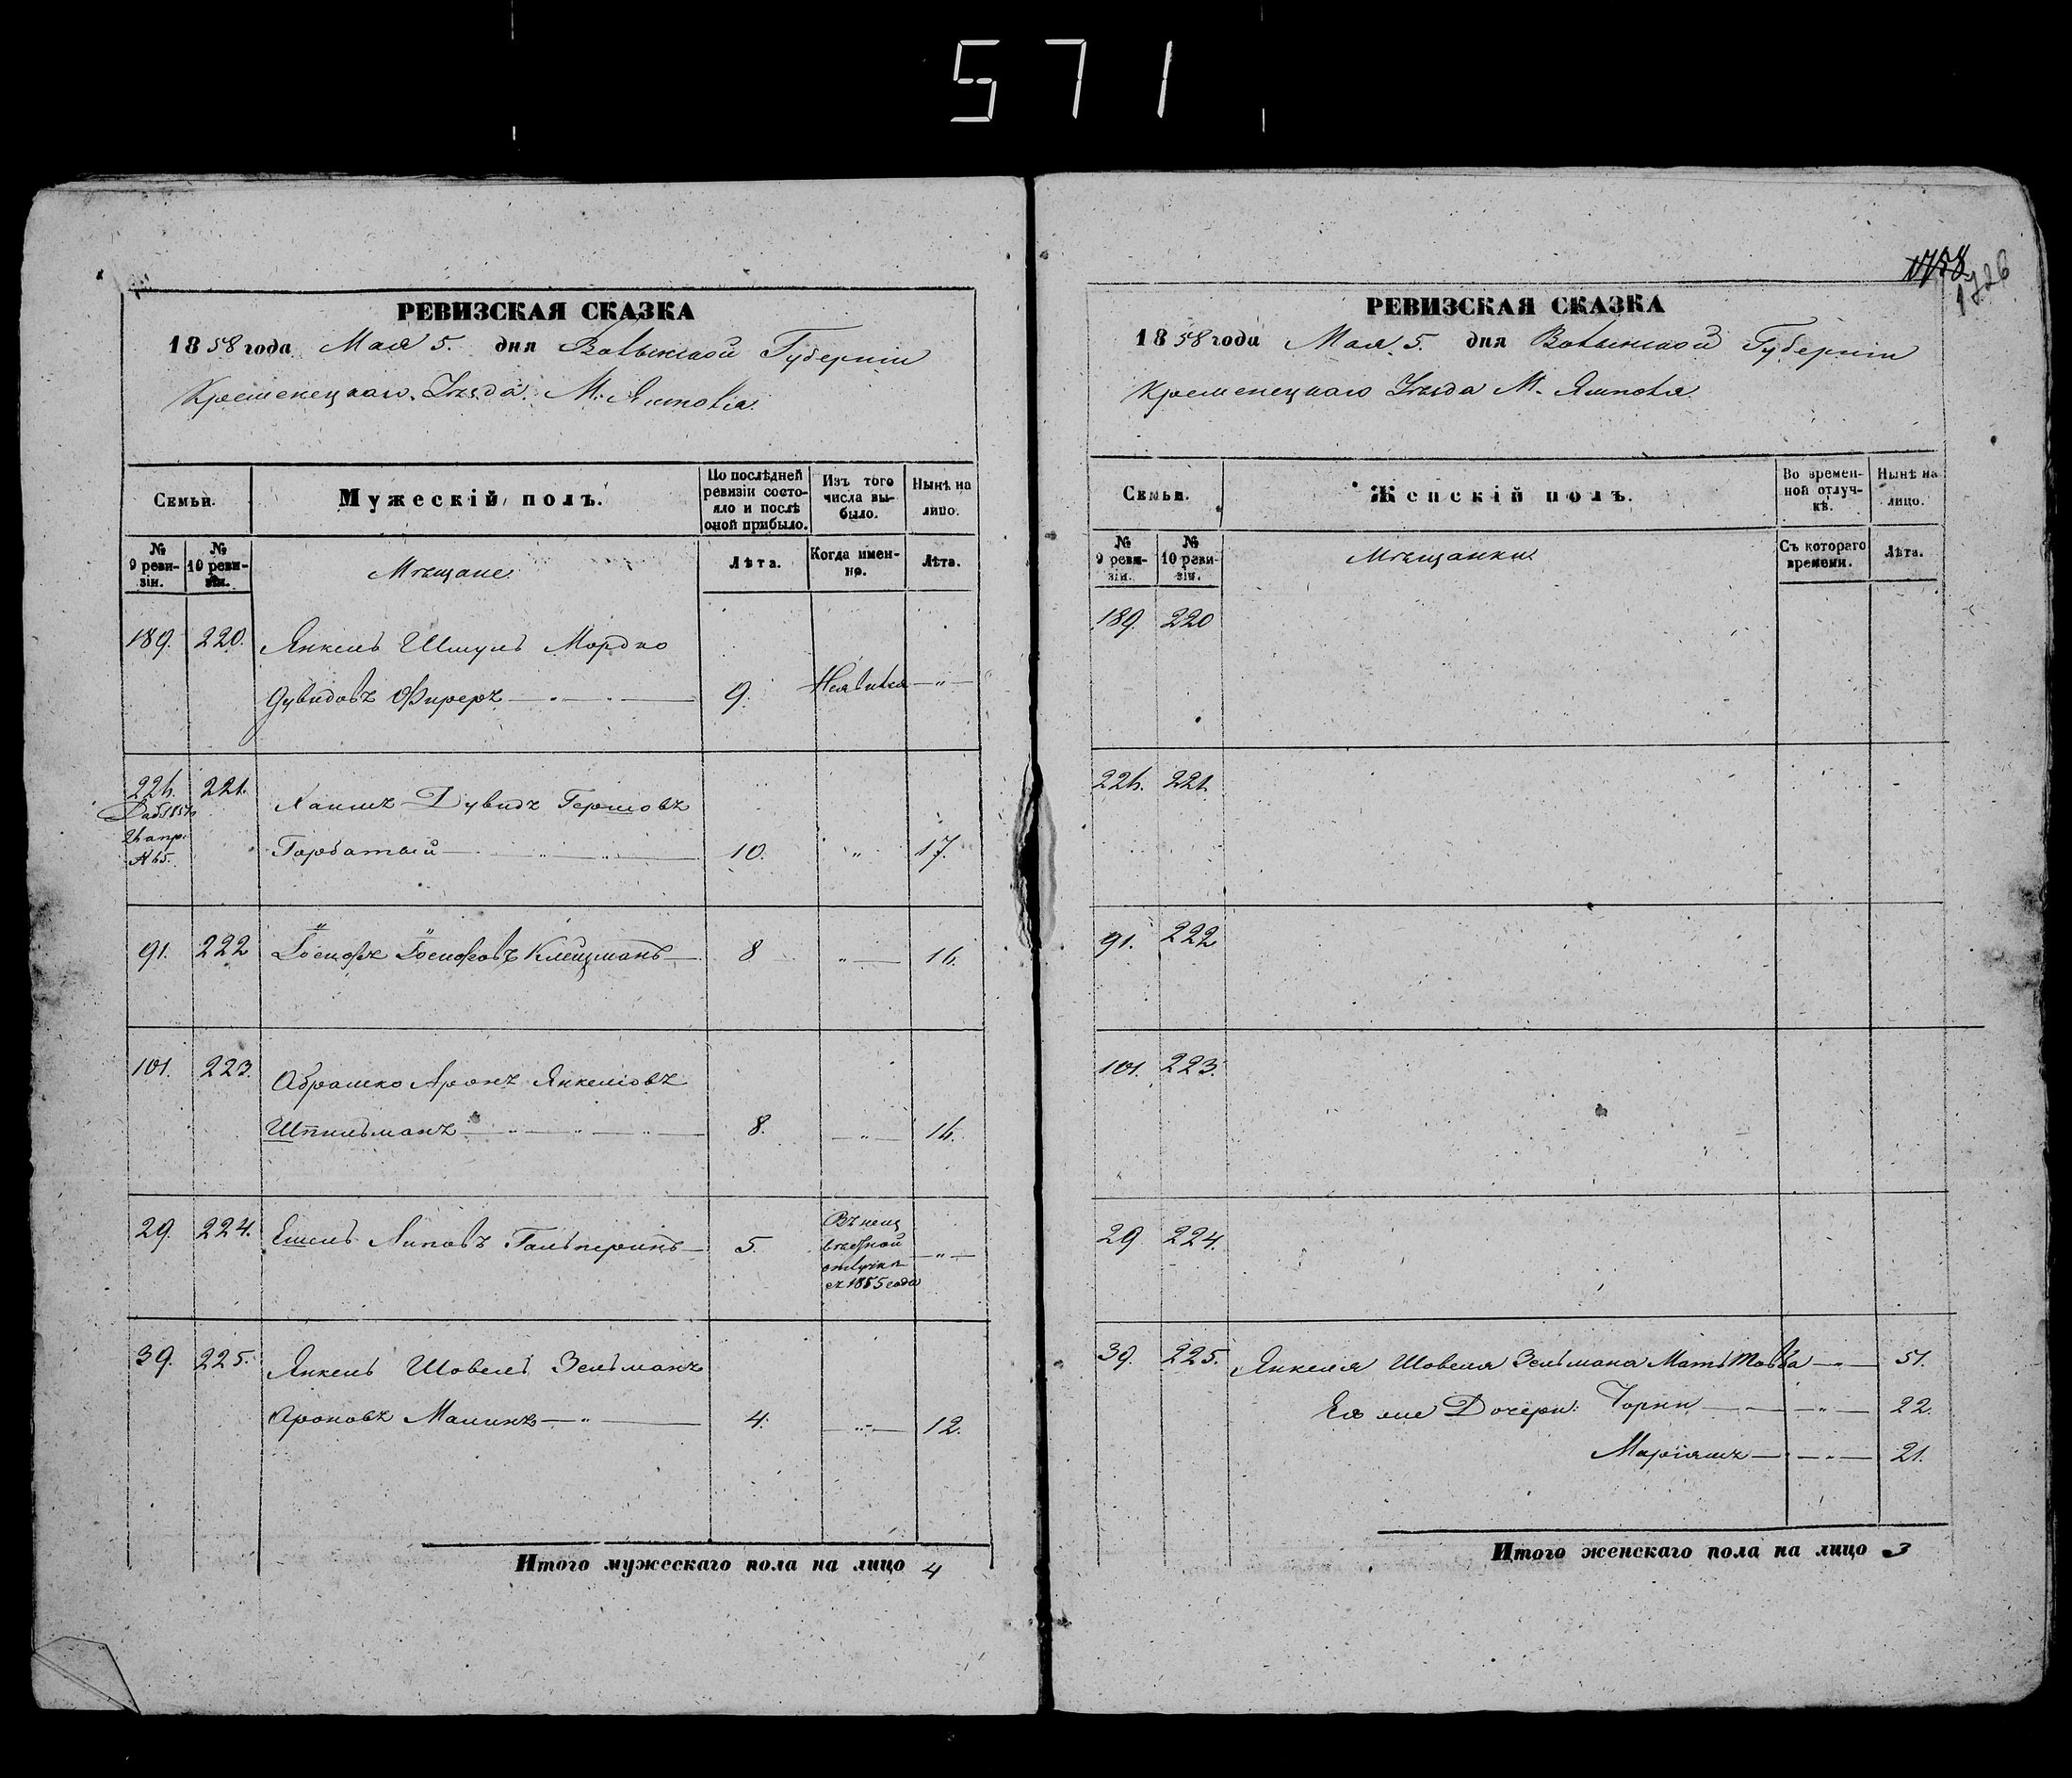 571
РЕВИЗСКАЯ СКАЗКА
1858 года Мая 5. дня Волынской Губерніи
Кременецкаго Уѣзда М. Ямполя
Семьи.
Мужескій полъ.
По послѣдней ревизіи состояло и послѣ оной прибыло.
Изъ того числа выбыло.
Нынѣ на лицо.
№ 9 ревизіи.
№ 10 ревизіи.
Мѣщане
Лѣта.
Когда именно.
Лѣта.
189. 220. Янкель Шмуль Мордко
Дувидовъ Фиреръ — " — " — 9. Неявился — " —
221. Хаимъ Дувидъ Гершовъ
26 апр.
Горбатый — " — " — 10. " 17.
91. 222 Іосифъ Іосифовъ Клейцманъ — 8 " — 16.
101. 223. Абрашко Аронъ Янкелювъ
Шпильманъ — " — " — " — 8. — " — 16.
29. 224. Ешель Липовъ Гальперинъ — 5. — " —
отлучкѣ
съ 1855 года
39. 225. Янкель Шовель Зельманъ
Ароновъ Малинъ — " — 4. — " — 12.
Итого мужескаго пола на лицо 4
1758
1726
РЕВИЗСКАЯ СКАЗКА
1858 года Мая 5. дня Волынской Губерніи
Кременецкаго Уѣзда М. Ямполя
Семьи.
Женскій полъ.
Во временной отлучкѣ.
Нынѣ на лицо.
№ 9 ревизіи.
№ 10 ревизіи.
Мѣщанки
Съ котораго времени.
Лѣта.
189. 220
221.
91. 222
101. 223.
29 224.
39. 225. Янкеля Шовеля Зельмана Мать Товба — " — 51.
Ея же Дочери: Чорни — " — 22.
Маріямъ — " — 21.
Итого женскаго пола на лицо 3